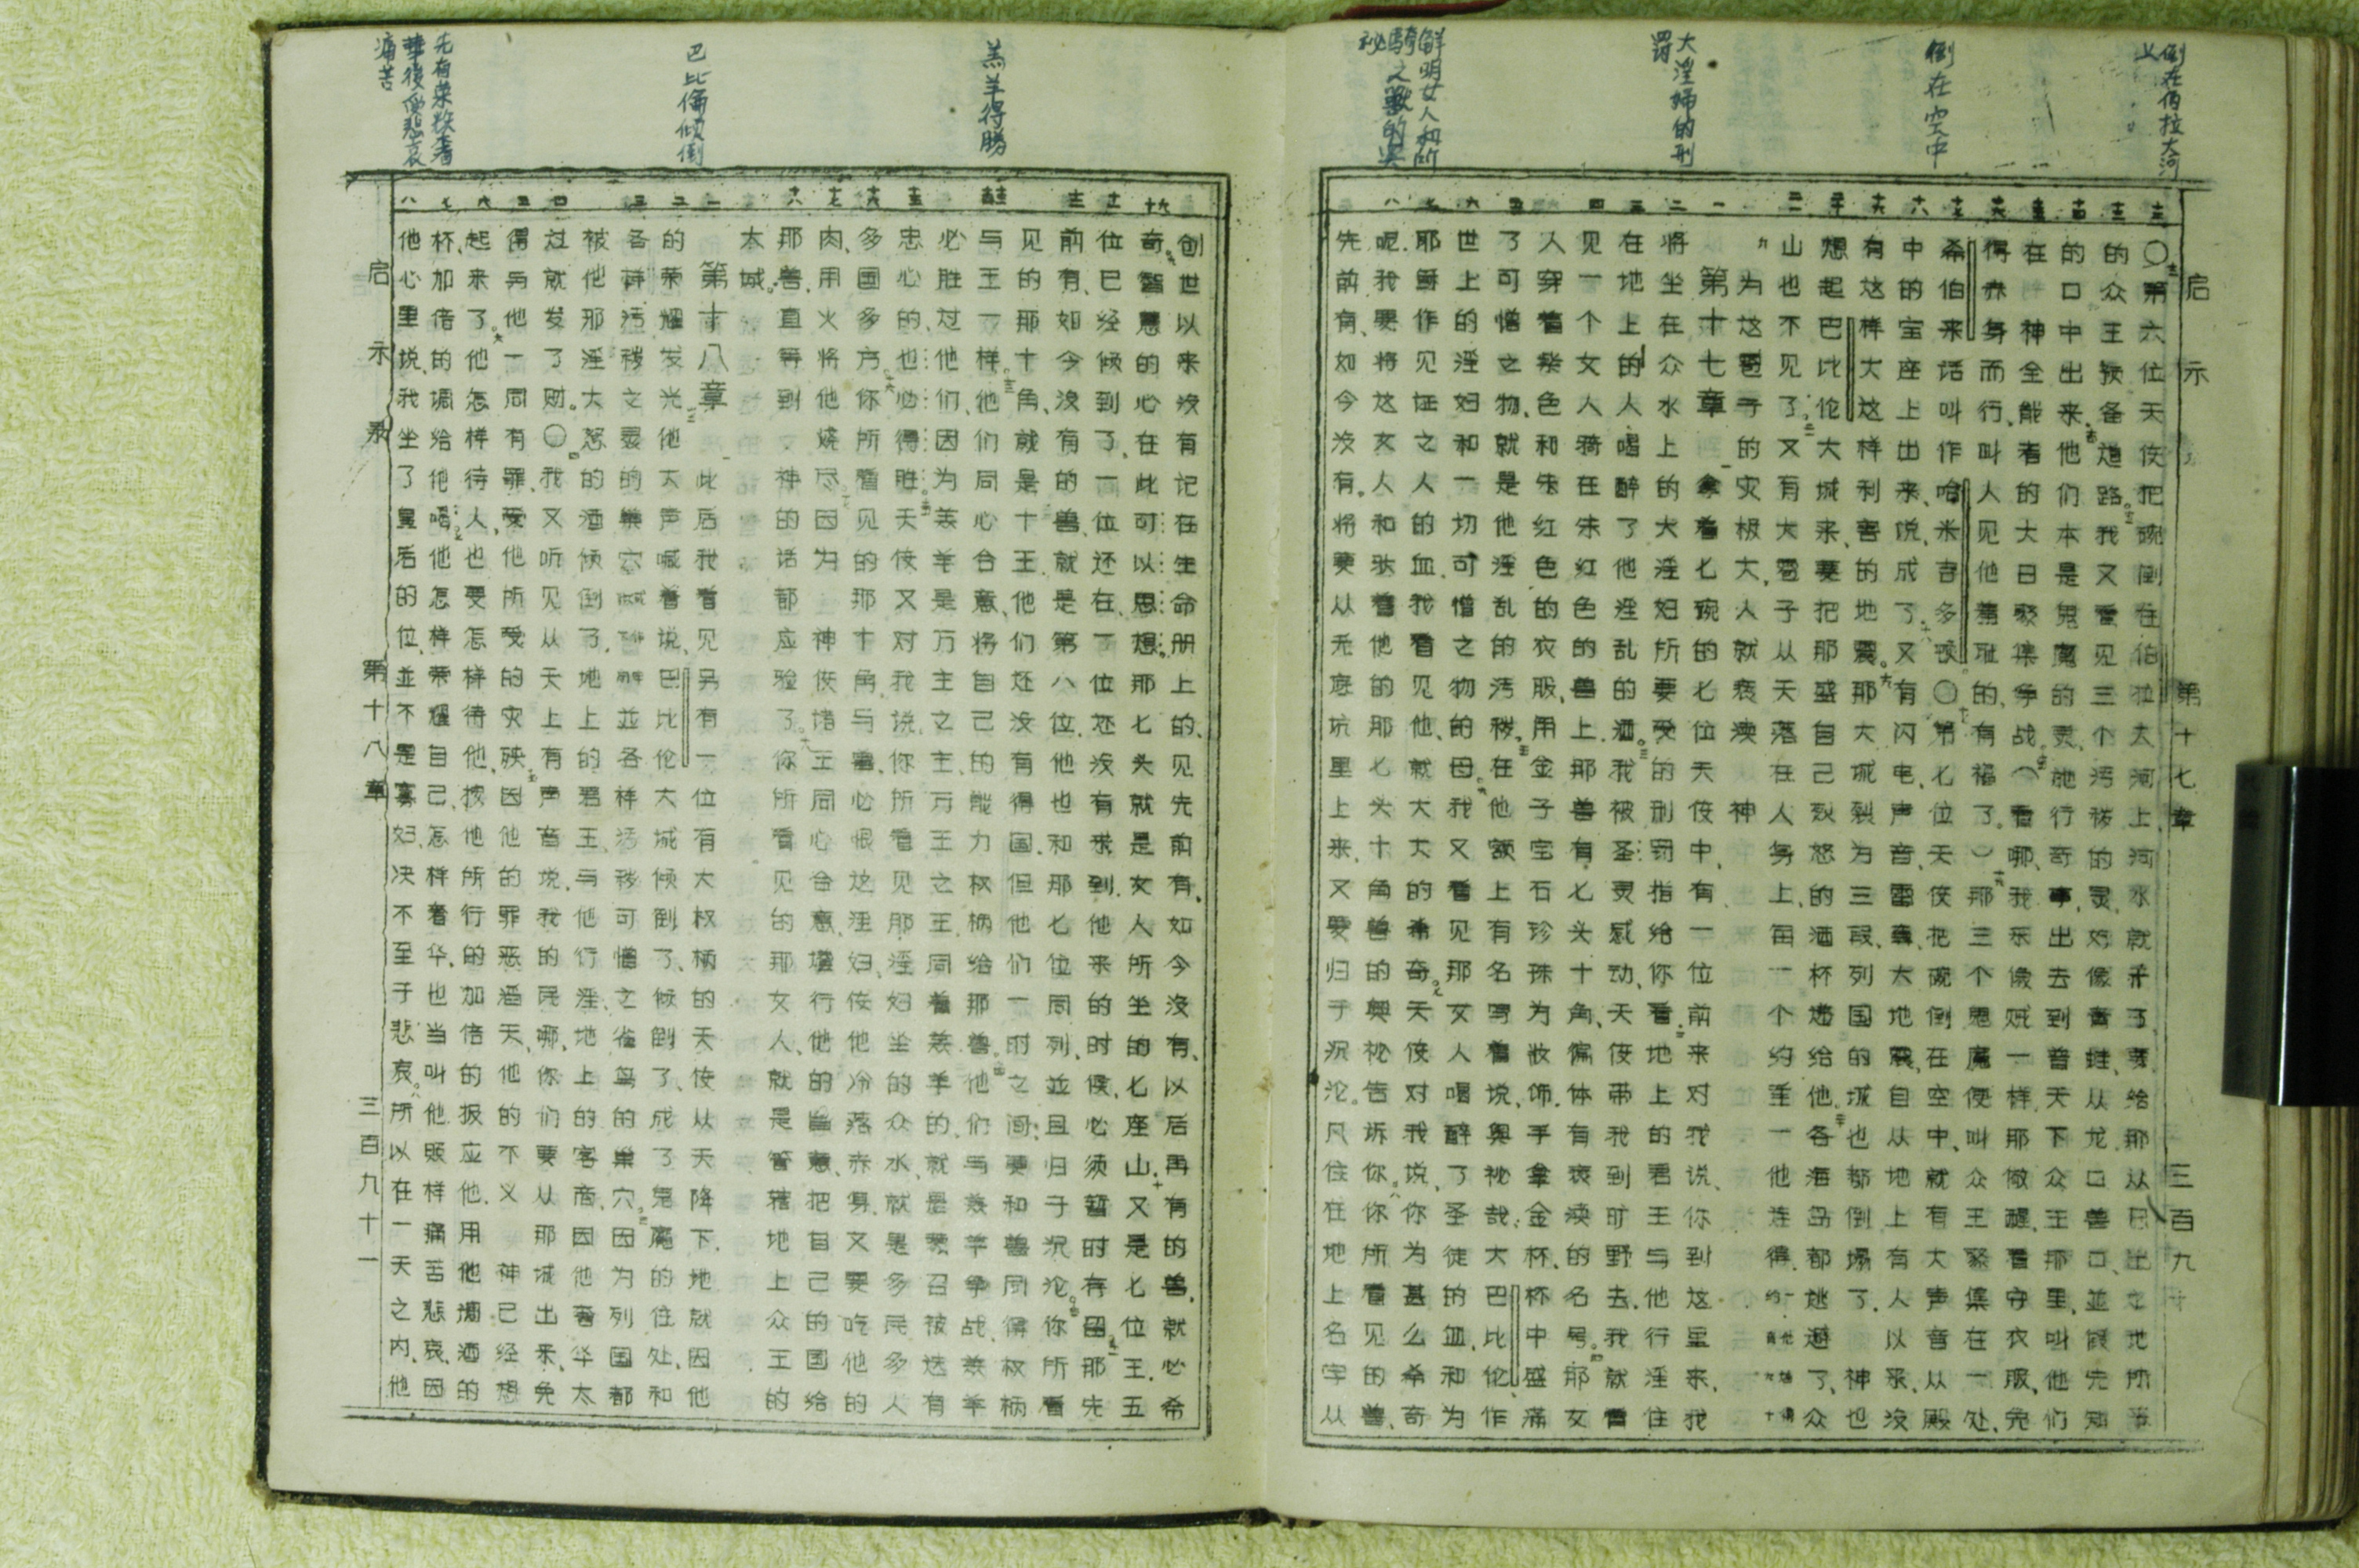 倒在伯拉大河上
倒在空中
大淫婦的刑罰
鮮明女人和所騎之獸的奥祕
启示 第十七章 三百九十
〇第六位天使把碗倒在伯拉大河上、河水就乾了、要给那从日出之地所来
的众王预备道路。我又看见三个污秽的灵、好像青蛙、从龙口兽口、並假先知
的口中出来。他们本是鬼魔的灵、施行奇事、出去到普天下众王那里、叫他们
在 神全能者的大日聚集争战。（看哪、我来像贼一样、那儆醒看守衣服、免
得赤身而行、叫人见他羞耻的、有福了。）那三个鬼魔便叫众王聚集在一处、
希伯来话叫作哈米吉多顿。〇第七位天使把碗倒在空中、就有大声音从殿
中的宝座上出来、说、成了。又有闪电、声音、雷轰、大地震、自从地上有人以来、没
有这样大这样利害的地震。那大城裂为三段、列国的城也都倒塌了、神也
想起巴比伦大城来、要把那盛自己烈怒的酒杯递给他。各海岛都逃避了、众
山也不见了。又有大雹子从天落在人身上、每一个约重一他连得、
为这雹子的灾极大、人就亵渎 神
第十七章 拿着七碗的七位天使中、有一位前来对我说、你到这里来、我
将坐在众水上的大淫妇所要受的刑罚指给你看。地上的君王与他行淫、住
在地上的人喝醉了他淫乱的酒。我被圣灵感动、天使带我到旷野去、我就看
见一个女人骑在朱红色的兽上、那兽有七头十角、徧体有亵渎的名号。那女
人穿着紫色和朱红色的衣服、用金子宝石珍珠为妆饰、手拿金杯、杯中盛满
了可憎之物、就是他淫乱的污秽。在他额上有名写着说、奥祕哉、大巴比伦、作
世上的淫妇和一切可憎之物的母。我又看见那女人喝醉了圣徒的血、和为
耶稣作见证之人的血、我看见他、就大大的希奇。天使对我说、你为甚么希奇
呢、我要将这女人和驮着他的那七头十角兽的奥祕告诉你。你所看见的兽、
先前有、如今没有。将要从无底坑里上来、又要归于沉沦。凡住在地上名字从
羔羊得勝
巴比倫傾倒
先有荣
後受悲哀痛苦
创世以来没有记在生命册上的、见先前有、如今没有、以后再有的兽、就必希
奇。智慧的心在此可以思想。那七头就是女人所坐的七座山、又是七位王、五
位已经倾倒了、一位还在、一位还没有来到、他来的时候、必须暂时存留。那先
前有、如今没有的兽、就是第八位、他也和那七位同列、並且归于沉沦。你所看
见的那十角、就是十王、他们还没有得国、但他们一时之间、要和兽同得权柄
与王一样。他们同心合意、将自己的能力权柄给那兽。他们与羔羊争战、羔羊
必胜过他们、因为羔羊是万主之主、万王之王、同着羔羊的、就是蒙召被选有
忠心的、也必得胜。天使又对我说、你所看见那淫妇坐的众水、就是多民多人
多国多方。你所看见的那十角与兽、必恨这淫妇、使他冷落赤身、又要吃他的
肉、用火将他烧尽。因为 神使诸王同心合意、遵行他的旨意、把自己的国给
那兽、直等到 神的话都应验了。你所看见的那女人、就是管辖地上众王的
大城。
第十八章 此后我看见另有一位有大权柄的天使从天降下、地就因他
的荣耀发光。他大声喊着说、巴比伦大城倾倒了、倾倒了、成了鬼魔的住处、和
各样污秽之灵的巢穴、並各样污秽可憎之雀鸟的巢穴。因为列国都
被他那淫大怒的酒倾倒了、地上的君王与他行淫、地上的客商、因他奢华太
过就发了财。〇我又听见从天上有声音说、我的民哪、你们要从那城出来、免
得与他一同有罪、受他所受的灾殃、因他的罪恶滔天、他的不义 神已经想
起来了。他怎样待人、也要怎样待他、按他所行的加倍的报应他、用他调酒的
杯、加倍的调给他喝。他怎样荣耀自己、怎样奢华、也当叫他照样痛苦悲哀、因
他心里说、我坐了皇后的位、並不是寡妇、决不至于悲哀。所以在一天之内、他
启示录 第十八章 三百九十一